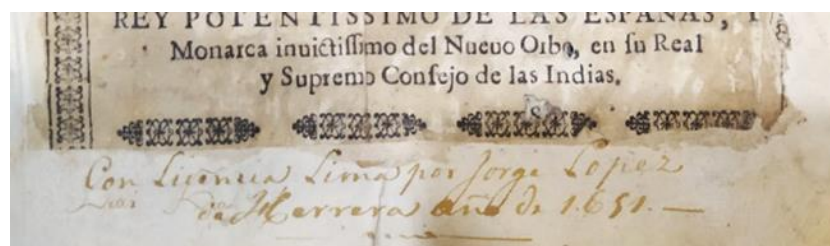 REY POTENTISSIMO DE LAS ESPAÑAS, Y
Monarca inuictissimo del Nueuo Orbe, en su Real
y Supremo Consejo de las Indias.
Con Licencia Lima por Jorge Lopez
de Herrera año de 1651.—